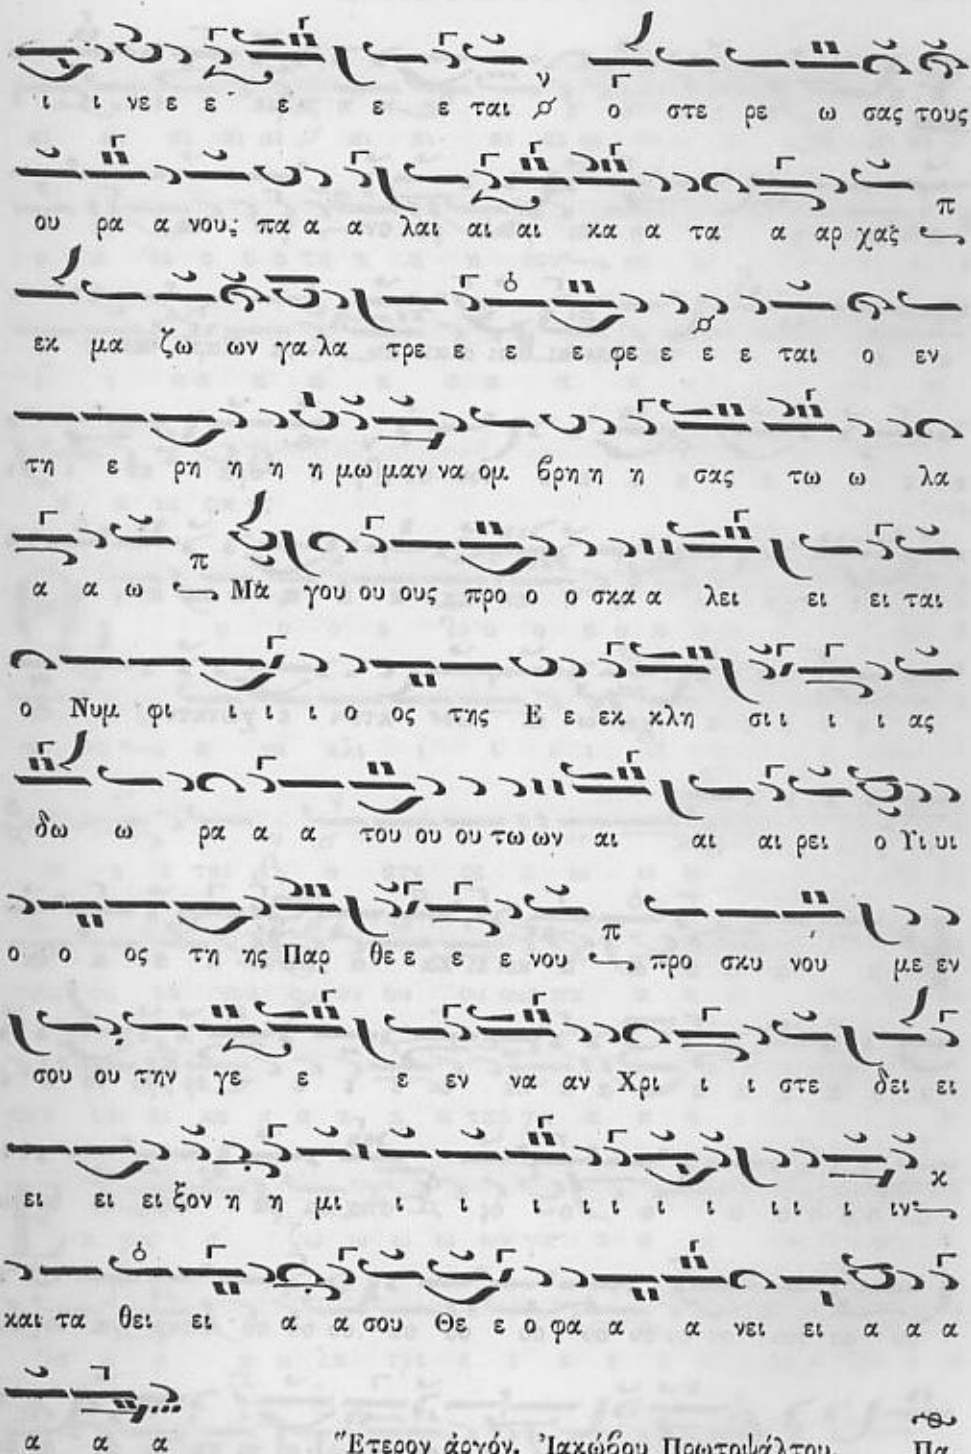 ι ι νε ε ε ε ε ε ε ται ν ο στε ρε ω σας τους
ου ρα α νους; πα α α λαι αι αι κα α τα α αρ χας π
εκ μα ζω ων γα λα τρε ε ε ε φε ε ε ε ται ο εν
τη ε ρη η η η μω μαν να ομ βρη η η σας τω ω λα
α α ω π Μα γου ου ους προ ο ο σκα α λει ει ει ται
ο Νυμ φι ι ι ι ο ος της Ε ε εκ κλη σι ι ι ι ας
δω ω ρα α α του ου ου τω ων αι αι αι ρει ο Υι υι
ο ο ος τη ης Παρ θε ε ε ε νου π προ σκυ νου με εν
σου ου την γε ε ε εν να αν Χρι ι ι στε δει ει
ει ει ει ξον η η μι ι ι ι ι ι ι ι ι ι ιν κ
και τα θει ει α α σου Θε ε ο φα α α νει ει α α α
α α α Ἕτερον ἀργόν. Ἰακώβου Πρωτοψάλτου. Πα